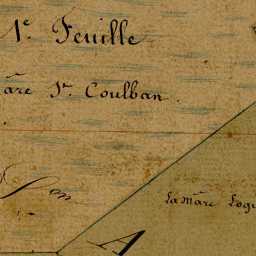 1e. Feuille
are St. Coulban.
son
A
La mare Logi